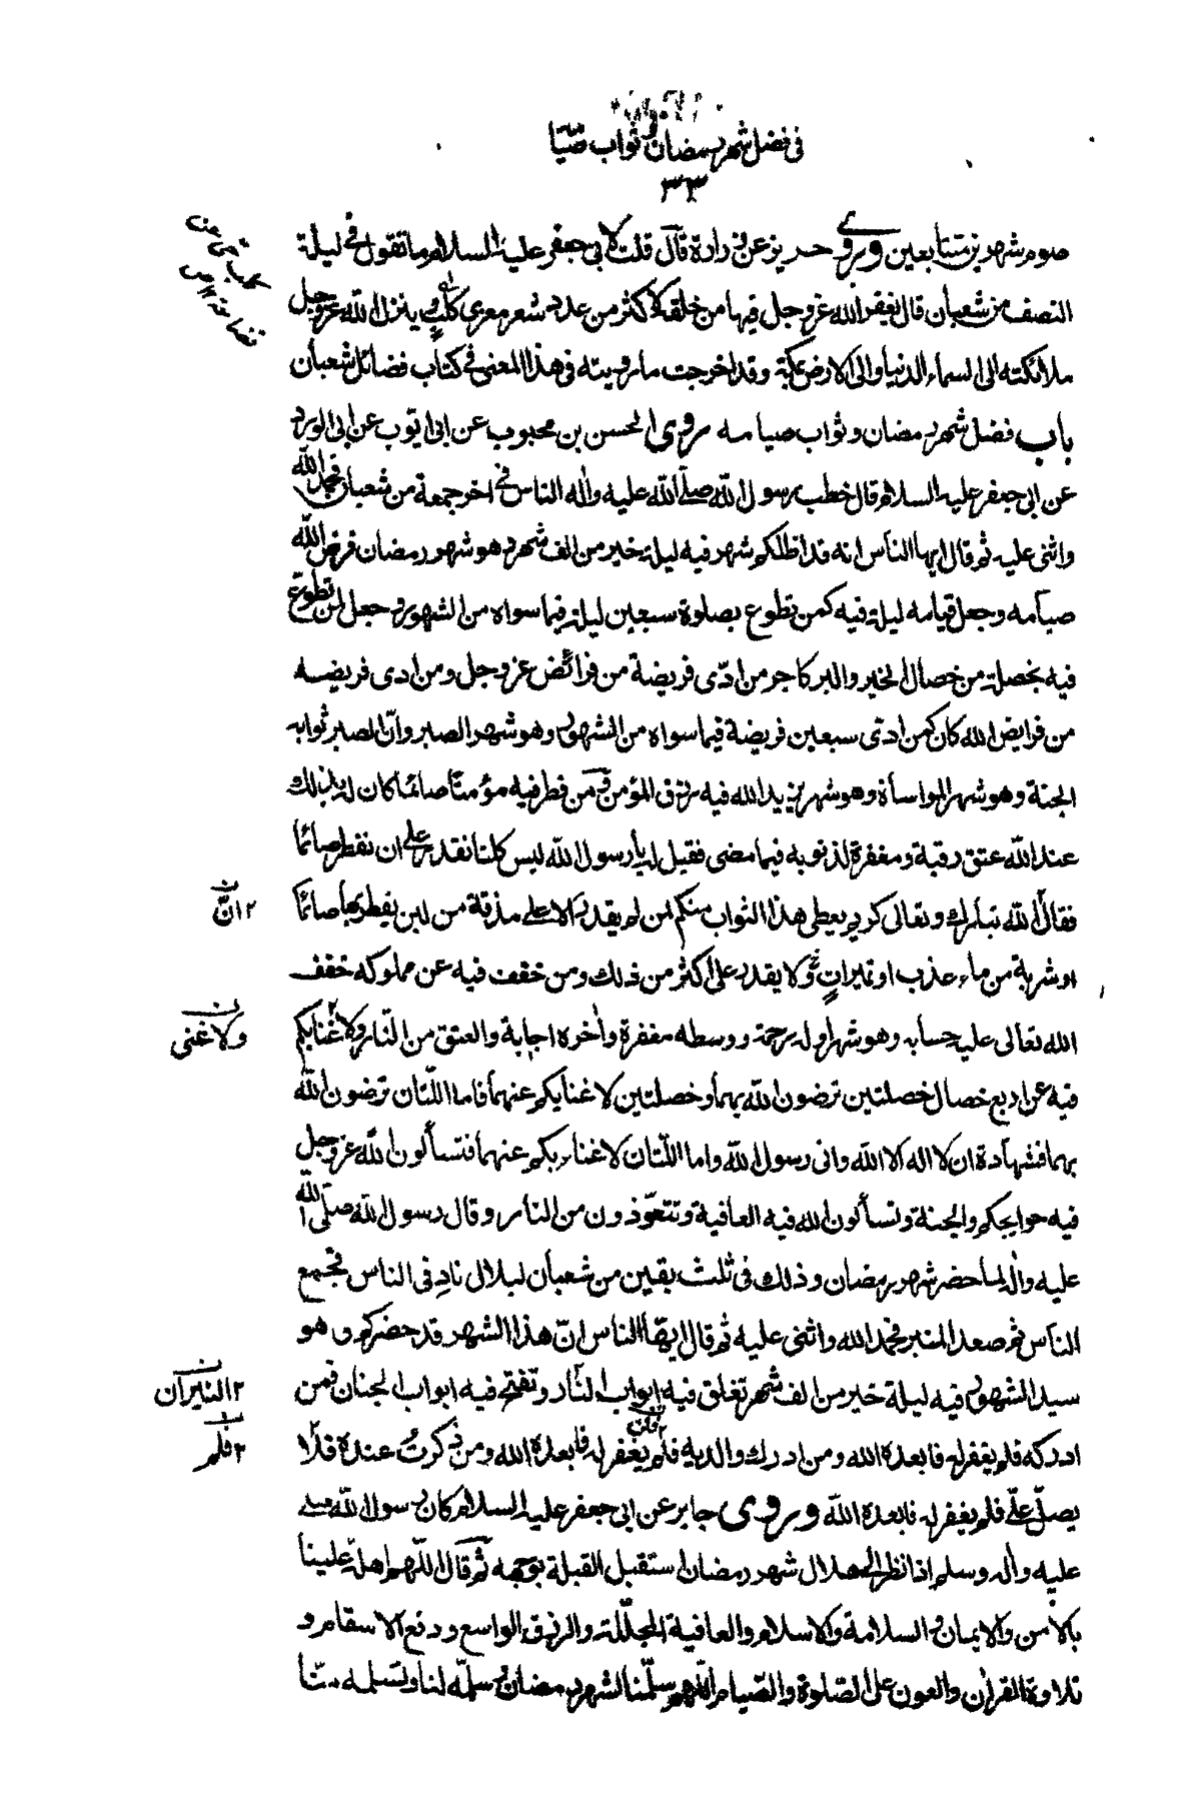 في فضل شهر رمضان وثواب صيا
٣٣
صوم شهرين متتابعين وروى حريز عن زرارة قال قلت لابي جعفر عليه السلام ما تقول في ليلة
النصف من شعبان قال يغفر الله عز وجل فيها من خلقه لاكثر من عدد شعر معزى كلب وينزل الله عز وجل
ملائكته الى السماء الدنيا والى الارض بمكة وقد اخرجت ما رويته في هذا المعنى في كتاب فضائل شعبان
باب فضل شهر رمضان وثواب صيامه روى الحسن بن محبوب عن ابى ايوب عن ابى الورد
عن ابي جعفر عليه السلام قال خطب رسول الله صلى الله عليه واله الناس في اخر جمعة من شعبان فحمد الله
واثنى عليه ثم قال ايها الناس انه قد اظلكم شهر فيه ليلة خير من الف شهر وهو شهر رمضان فرض الله
صيامه وجعل قيام ليلة فيه كمن تطوع بصلوة سبعين ليلة فيما سواه من الشهور وجعل لمن تطوع
فيه بخصلة من خصال الخير والبر كاجر من ادّى فريضة من فرائض عز وجل ومن ادى فريضة
من فرايض الله كان كمن ادّى سبعين فريضة فيما سواه من الشهور وهو شهر الصبر وانّ الصبر ثوابه
الجنة وهو شهر المواساة وهو شهر يزيد الله فيه رزق المؤمن ومن فطر فيه مؤمنًا صائمًا كان له بذلك
عند الله عتق رقبة ومغفرة لذنوبه فيما مضى فقيل له يا رسول الله ليس كلنا نقدر على ان نفطر صائمًا
فقال الله تبارك وتعالى كريم يعطى هذا الثواب منكم لمن لم يقدر الا على مذقة من لبن يفطر بها صائمًا
٢ انّ
او شربة من ماء عذب او تميرات ولا يقدر على اكثر من ذلك ومن خفف فيه عن مملوكه خفف
الله تعالى عليه حسابه وهو شهر اوله رحمة ووسطه مغفرة واخره اجابة والعتق من النار ولا غنا بكم
ولا غنى
فيه عن اربع خصال خصلتين ترضون الله بهما وخصلتين لا غنا بكم عنهما فاما اللتان ترضون الله
بهما فشهادة ان لا اله الا الله واني رسول الله واما اللتان لا غناء بكم عنهما فتسألون الله عز وجل
فيه حوايجكم والجنة وتسألون الله فيه العافية وتتعوّذون من النار وقال رسول الله صلى الله
عليه واله لما حضر شهر رمضان وذلك في ثلث بقين من شعبان لبلال نادِ في الناس فجمع
الناس ثم صعد المنبر فحمد الله واثنى عليه ثم قال ايها الناس انّ هذا الشهر قد حضركم وهو
سيد الشهور فيه ليلة خير من الف شهر تغلق فيه ابواب النار وتفتح فيه ابواب الجنان فمن
٢ النيران
ادركه فلم يغفر له فابعده الله ومن ادرك والديه فلم يغفر له فابعده الله ومن ذكرتُ عنده فلا
٢ فلم
يصلّ علىّ فلم يغفر له فابعده الله وروى جابر عن ابى جعفر عليه السلام كان رسول الله صلى
عليه واله وسلم اذا نظر الى هلال شهر رمضان استقبل القبلة بوجهه ثم قال اللهم اهله علينا
بالامن والايمان والسلامة والاسلام والعافية المجللة والرزق الواسع ودفع الاسقام و
تلاوة القران والعون على الصلوة والصيام اللهم سلّمنا لشهر رمضان وسلمّه لنا وتسلمه منّا